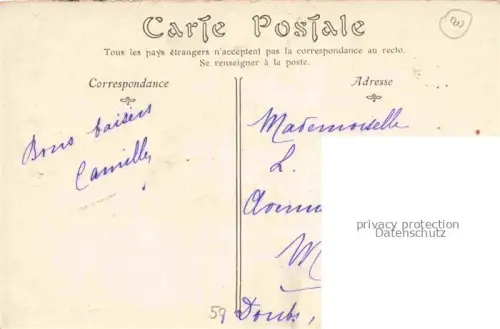 Carte Postale
Tous les pays étrangers n'acceptent pas la correspondance au recto.
Se renseigner à la poste.
Correspondance
Adresse
Bons baisers
Camille
Mademoiselle
L.
M
59
Doubs,
privacy protection
Datenschutz